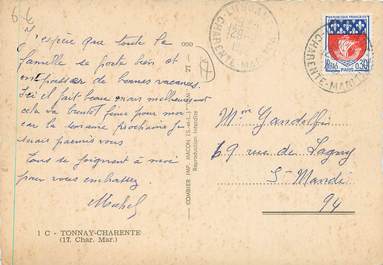 J'espère que toute la
famille se porte bien et
de bonnes vacances.
Ici il fait beau mais malheureusement
cela va bientôt finir pour moi
car la semaine prochaine je
serai parmi vous
Tous se joignent à moi
pour vous embrasser
Michel
1 C - TONNAY-CHARENTE
(17. Char. Mar.)
COMBIER IMP. MACON (S.-et-L.)
Reproduction interdite
CHARENTE-MARITIME
REPUBLIQUE FRANCAISE
0,30
PARIS
CHARENTE-MARITIME
Mme Gandolfini
69 rue de Lagny
St Mandé
94